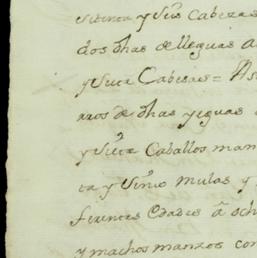 setenta y seis Cabezas
dos dhas de lleguas a
y siete Cabesas = As
rros de dhas yeguas
y siete Caballos man
ta y sinco mulas y
ferentes edades â och
y machos manzos con